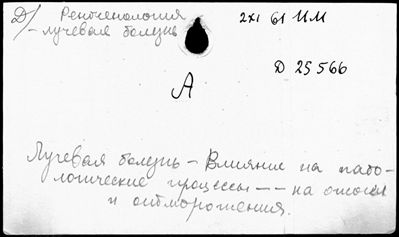 Д/ Рентгенология
- лучевая болезнь
2x1 61 ИМ
Д 25566
А
Лучевая болезнь - Влияние на пато-
логические процессы -- на ожоги
и отморожения.